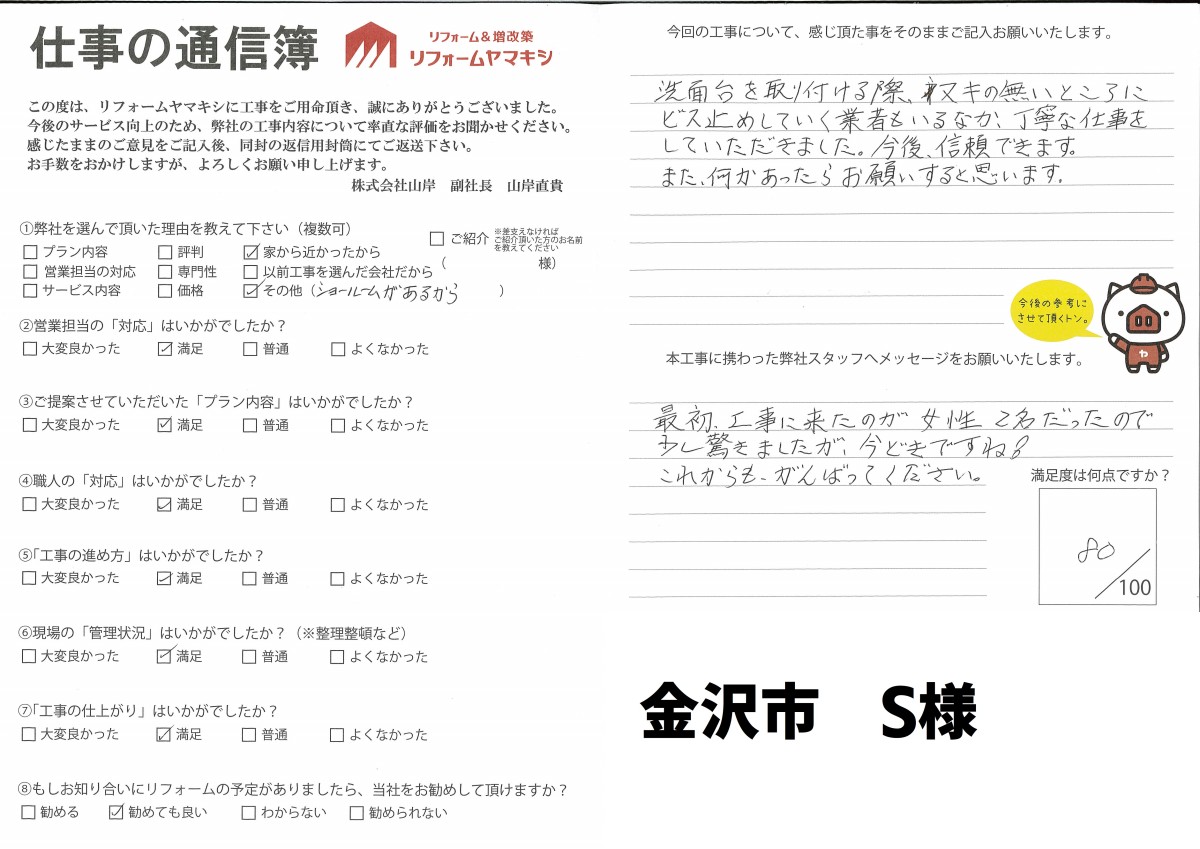 仕事の通信簿
リフォーム＆増改築
リフォームヤマキシ
この度は、リフォームヤマキシに工事をご用命頂き、誠にありがとうございました。
今後のサービス向上のため、弊社の工事内容について率直な評価をお聞かせください。
感じたままのご意見をご記入後、同封の返信用封筒にてご返送下さい。
お手数をおかけしますが、よろしくお願い申し上げます。
株式会社山岸　副社長　山岸直貴
①弊社を選んで頂いた理由を教えて下さい（複数可）
□ プラン内容 □ 評判 ☑ 家から近かったから □ ご紹介 ※差支えなければ
ご紹介頂いた方のお名前
を教えてください
□ 営業担当の対応 □ 専門性 □ 以前工事を選んだ会社だから （　　　様）
□ サービス内容 □ 価格 ☑ その他（ショールームがあるから　）
②営業担当の「対応」はいかがでしたか？
□ 大変良かった ☑ 満足 □ 普通 □ よくなかった
③ご提案させていただいた「プラン内容」はいかがでしたか？
□ 大変良かった ☑ 満足 □ 普通 □ よくなかった
④職人の「対応」はいかがでしたか？
□ 大変良かった ☑ 満足 □ 普通 □ よくなかった
⑤「工事の進め方」はいかがでしたか？
□ 大変良かった ☑ 満足 □ 普通 □ よくなかった
⑥現場の「管理状況」はいかがでしたか？（※整理整頓など）
□ 大変良かった ☑ 満足 □ 普通 □ よくなかった
⑦「工事の仕上がり」はいかがでしたか？
□ 大変良かった ☑ 満足 □ 普通 □ よくなかった
⑧もしお知り合いにリフォームの予定がありましたら、当社をお勧めして頂けますか？
□ 勧める ☑ 勧めても良い □ わからない □ 勧められない
今回の工事について、感じ頂た事をそのままご記入お願いいたします。
洗面台を取り付ける際、ヌキの無いところに
ビス止めしていく業者もいるなか、丁寧な仕事を
していただきました。今後、信頼できます。
また、何かあったらお願いすると思います。
今後の参考に
させて頂くトン。
や
本工事に携わった弊社スタッフへメッセージをお願いいたします。
最初、工事に来たのが女性2名だったので
少し驚きましたが、今どきですね。
これからも、がんばってください。
満足度は何点ですか？
80
/100
金沢市　S様